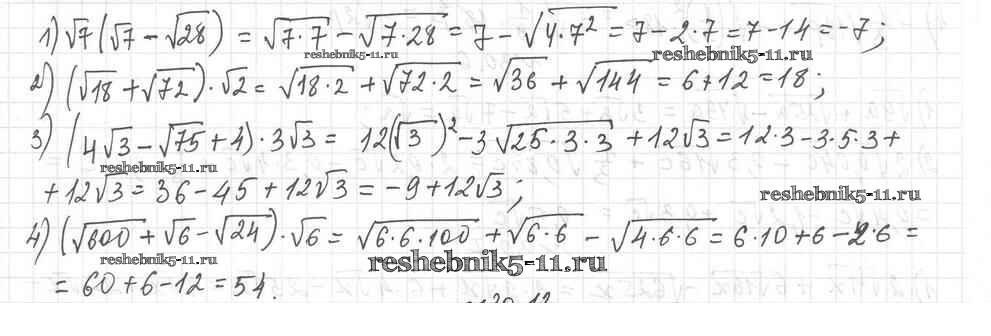 1) √7(√7 − √28) = √7·7 − √7·28 = 7 − √4·7² = 7−2·7 = 7−14 = −7;
reshebnik5-11.ru reshebnik5-11.ru
2) (√18 + √72)·√2 = √18·2 + √72·2 = √36 + √144 = 6+12 = 18;
3) (4√3 − √75 + 4)·3√3 = 12(√3)² − 3√25·3·3 + 12√3 = 12·3 − 3·5·3 +
reshebnik5-11.ru
+ 12√3 = 36 − 45 + 12√3 = −9 + 12√3;
reshebnik5-11.ru
4) (√600 + √6 − √24)·√6 = √6·6·100 + √6·6 − √4·6·6 = 6·10 + 6 − 2·6 =
reshebnik5-11.ru reshebnik5-11.ru
= 60 + 6 − 12 = 54.